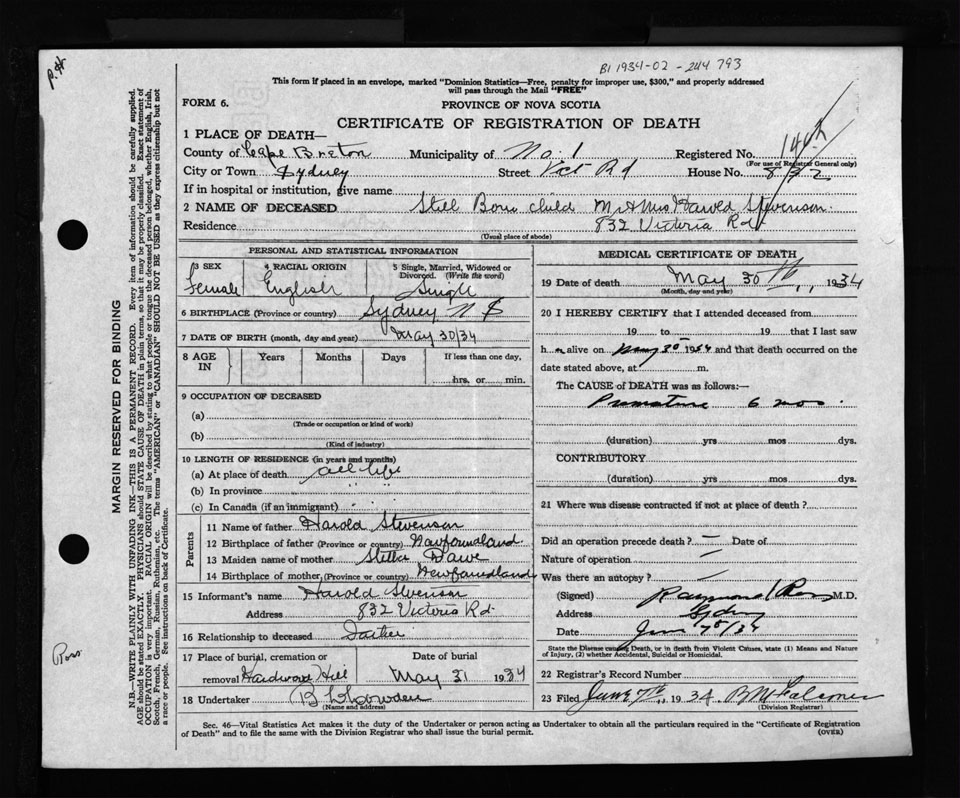 P.H.
B1 1934-02-244793
This form if placed in an envelope, marked "Dominion Statistics—Free, penalty for improper use, $300," and properly addressed
will pass through the Mail "FREE"
FORM 6.
PROVINCE OF NOVA SCOTIA
CERTIFICATE OF REGISTRATION OF DEATH
1 PLACE OF DEATH—
County of Cape Breton Municipality of No. 1 Registered No.
(For use of Registrar General only)
City or Town Sydney Street Vict Rd House No. 832
If in hospital or institution, give name
2 NAME OF DECEASED Still Born child Mr & Mrs Harold Stevenson
Residence 832 Victoria Rd
(Usual place of abode)
PERSONAL AND STATISTICAL INFORMATION
3 SEX Female
4 RACIAL ORIGIN English
5 Single, Married, Widowed or Divorced. (Write the word) Single
6 BIRTHPLACE (Province or country) Sydney N S
7 DATE OF BIRTH (month, day and year) May 30/34
8 AGE IN Years Months Days If less than one day,
hrs. or min.
9 OCCUPATION OF DECEASED
(a)
(Trade or occupation or kind of work)
(b)
(Kind of industry)
10 LENGTH OF RESIDENCE (in years and months)
(a) At place of death all life
(b) In province " "
(c) In Canada (if an immigrant) " "
Parents
11 Name of father Harold Stevenson
12 Birthplace of father (Province or country) Newfoundland
13 Maiden name of mother Stella Dawe
14 Birthplace of mother (Province or country) Newfoundland
15 Informant's name Harold Stevenson
Address 832 Victoria Rd
16 Relationship to deceased Father
17 Place of burial, cremation or Date of burial
removal Hardwood Hill May 31 1934
18 Undertaker
(Name and address)
MEDICAL CERTIFICATE OF DEATH
19 Date of death May 30th 1934
(Month, day and year)
20 I HEREBY CERTIFY that I attended deceased from
19 to 19 that I last saw
h alive on May 30 1934 and that death occurred on the
date stated above, at m.
The CAUSE OF DEATH was as follows:—
Premature 6 mos.
(duration) yrs mos dys.
CONTRIBUTORY
(duration) yrs mos dys.
21 Where was disease contracted if not at place of death?
Did an operation precede death? — Date of
Nature of operation —
Was there an autopsy? —
(Signed) Raymond Ross M.D.
Address Sydney
Date June 7th/34
State the Disease causing Death, or in death from Violent Causes, state (1) Means and Nature
of Injury, (2) whether Accidental, Suicidal or Homicidal.
22 Registrar's Record Number
23 Filed June 7th, 1934
(Division Registrar)
Sec. 46—Vital Statistics Act makes it the duty of the Undertaker or person acting as Undertaker to obtain all the particulars required in the "Certificate of Registration
of Death" and to file the same with the Division Registrar who shall issue the burial permit. (OVER)
MARGIN RESERVED FOR BINDING
N.B.—WRITE PLAINLY WITH UNFADING INK—THIS IS A PERMANENT RECORD. Every item of information should be carefully supplied.
AGE should be stated EXACTLY. PHYSICIANS should STATE CAUSE OF DEATH in plain terms, so that it may be properly classified. Exact statement of
OCCUPATION is very important. RACIAL ORIGIN will be described by stating to what people or tongue the deceased person belonged, whether English, Irish,
Scotch, French, German, Russian, Ruthenian, etc. The terms "AMERICAN" or "CANADIAN" SHOULD NOT BE USED as they express citizenship but not
a race or people. See instructions on back of Certificate.
Ross